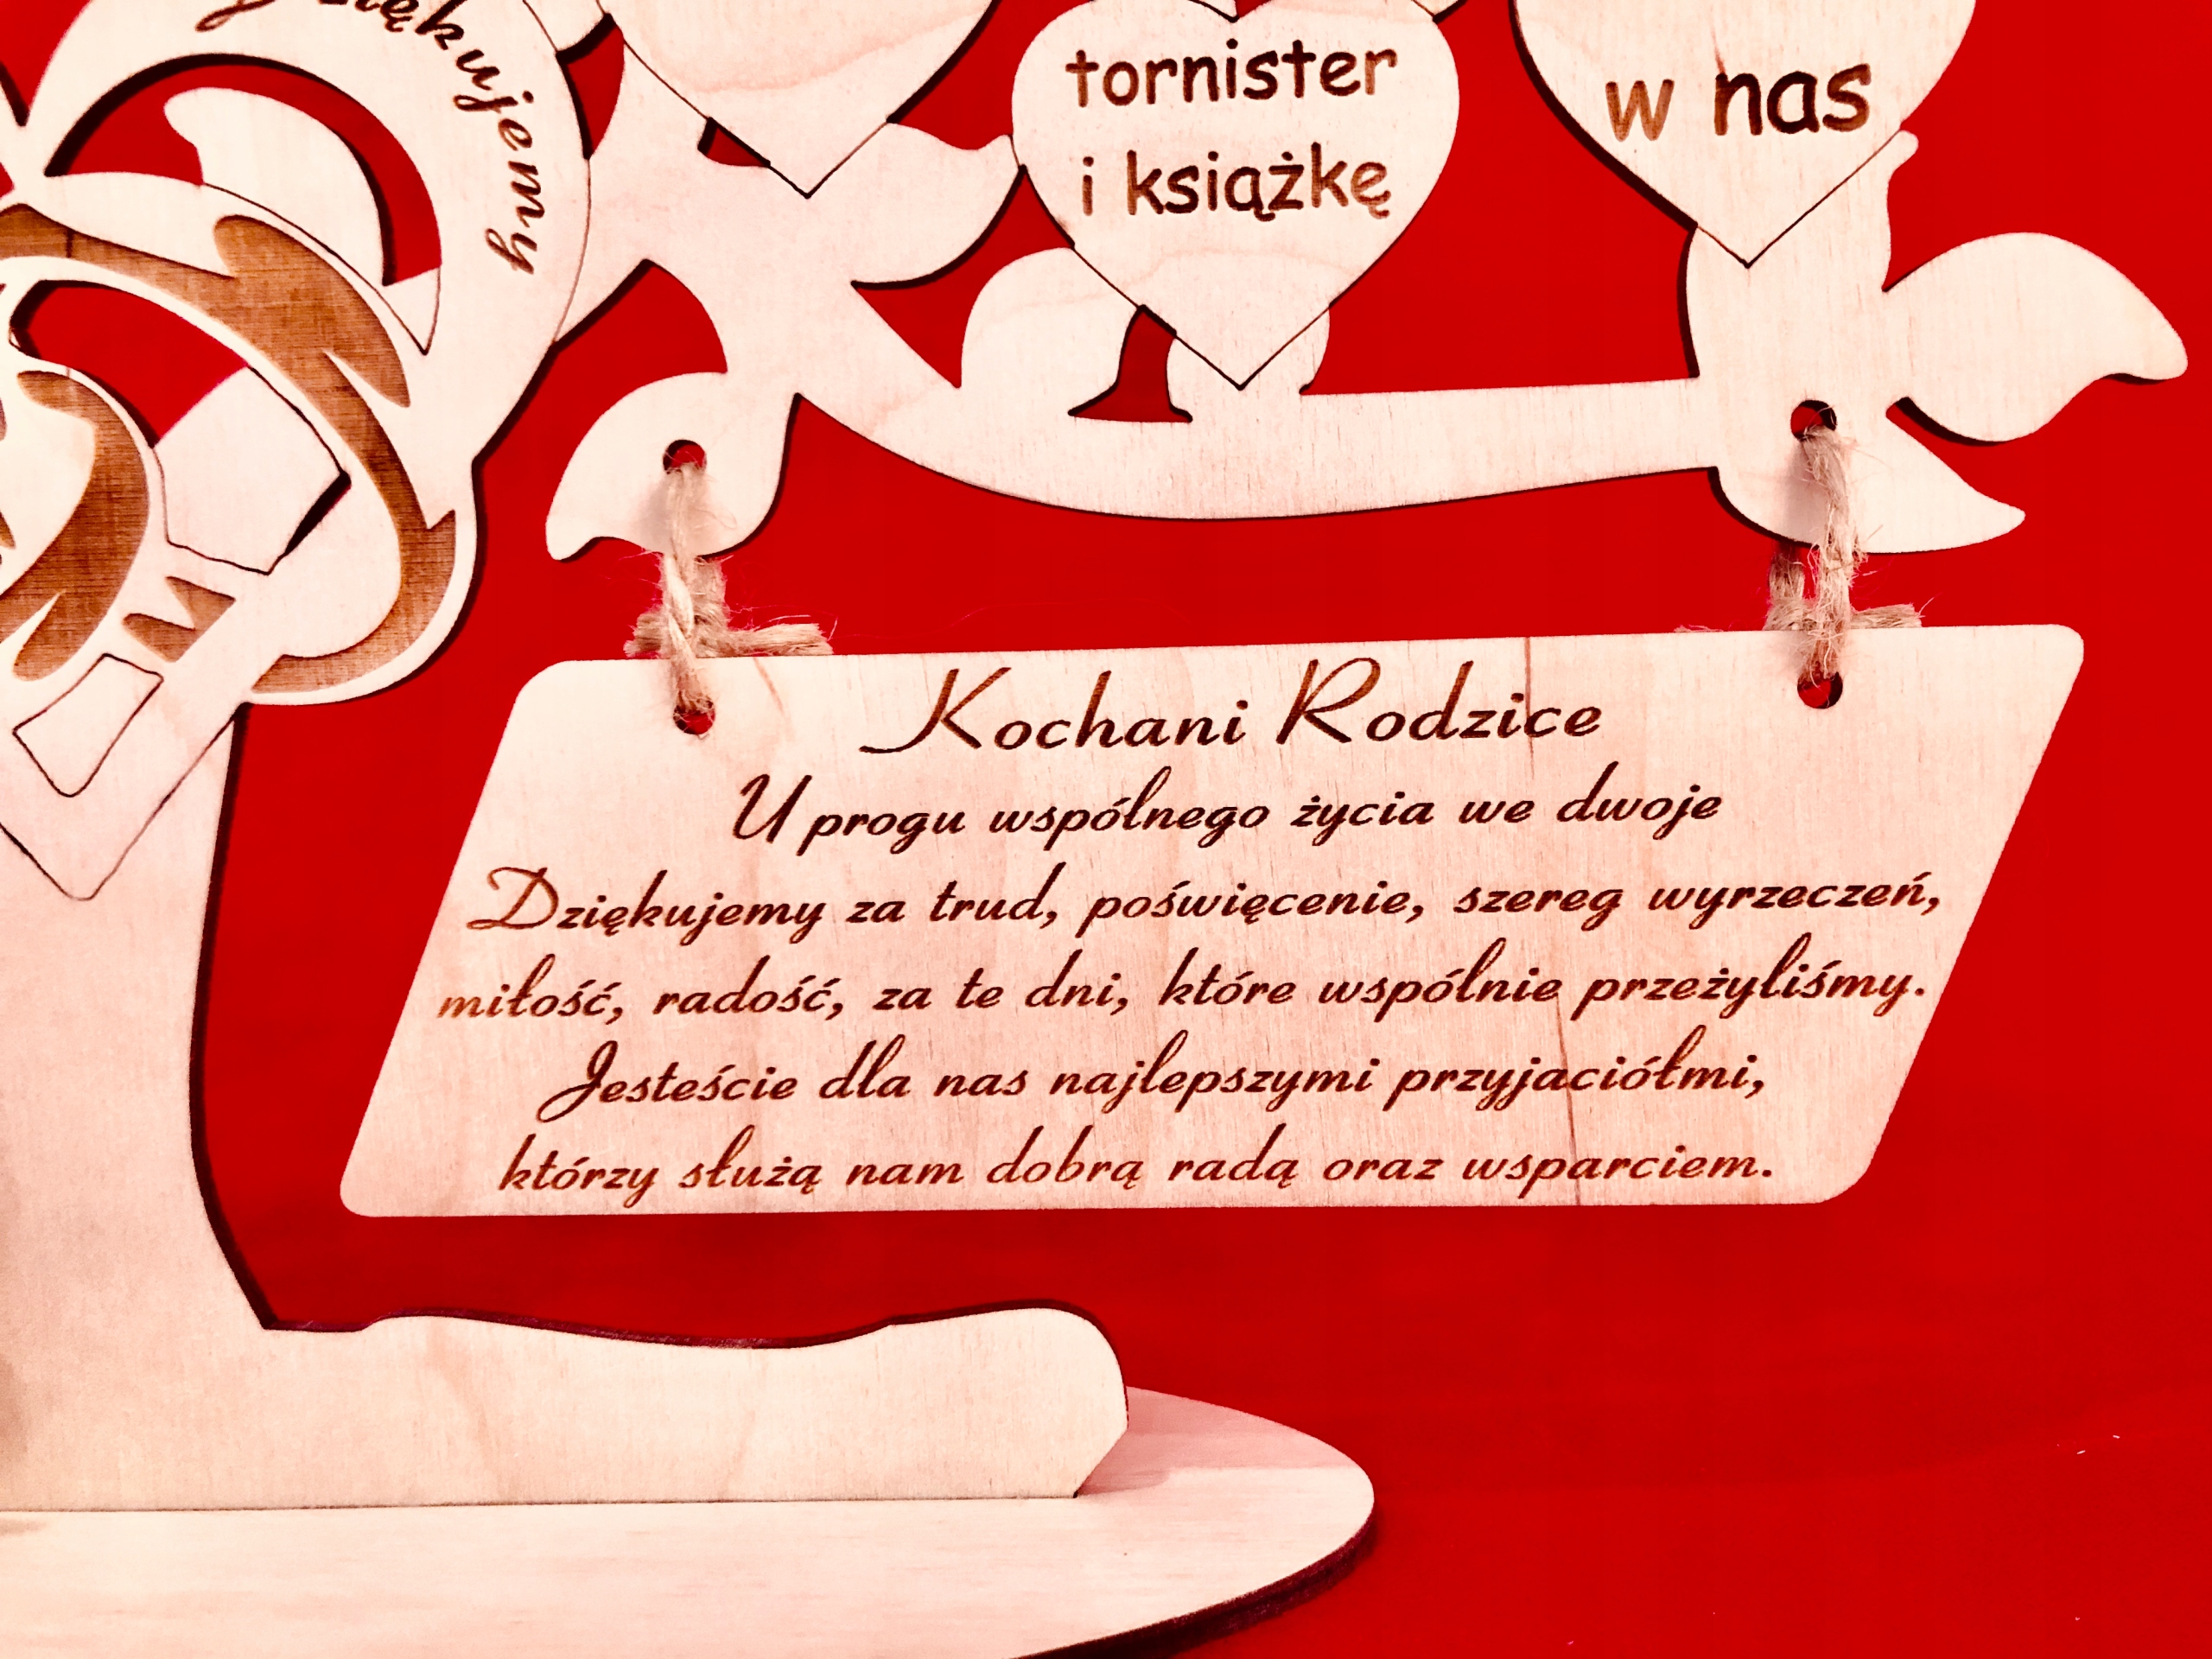 tornister
i książkę
w nas
Kochani Rodzice
U progu wspólnego życia we dwoje
Dziękujemy za trud, poświęcenie, szereg wyrzeczeń,
miłość, radość, za te dni, które wspólnie przeżyliśmy.
Jesteście dla nas najlepszymi przyjaciółmi,
którzy służą nam dobrą radą oraz wsparciem.